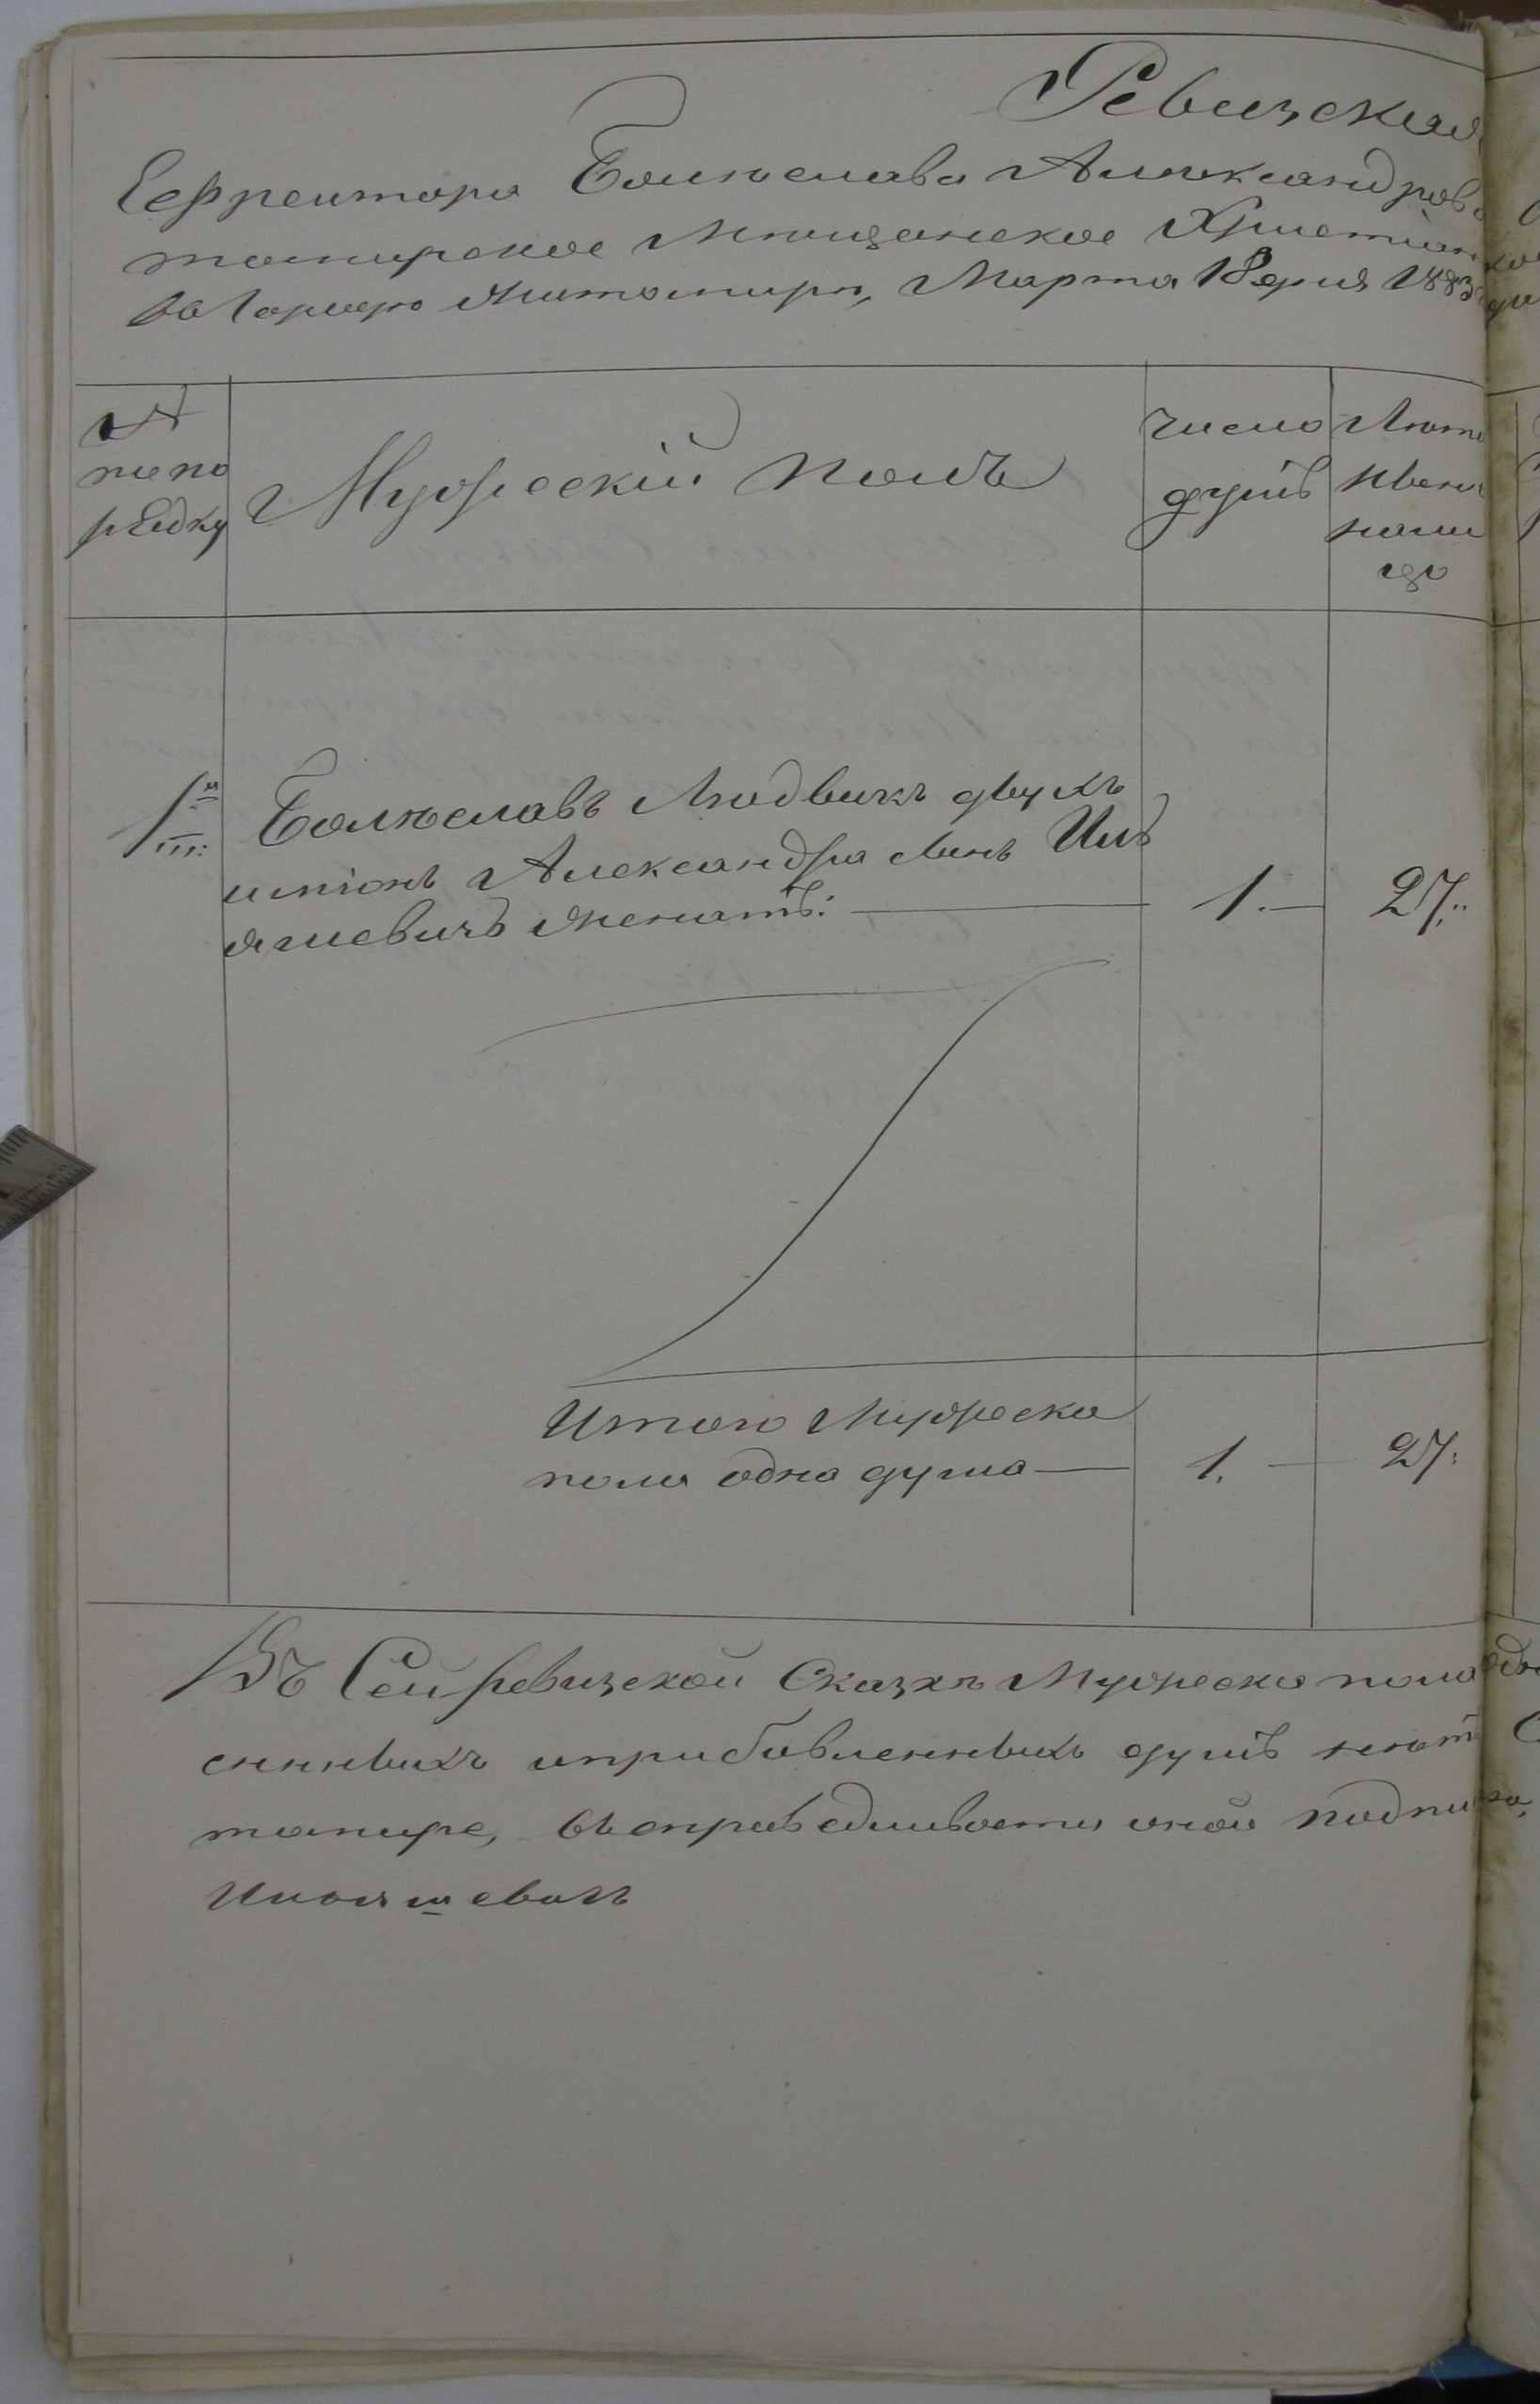 Ревизская
Ефрейтора Болѣслава Алѣксандров
томирское Мѣщанское Христиан
въ Городѣ Житомирѣ, Марта 18 дня 1883
№
по по
рядку
Мужескій полъ
число
душъ
Лѣта
нынѣ
1й
Болѣславъ Людвикъ двухъ
имѣнъ Александра сынъ Иль
яшевичъ женатъ:
1.— 27.
Итого Мужеска
пола одна душа —
1. — 27:
Въ Сей Ревизской Сказкѣ Мужеска пола
енныхъ и прибавленныхъ душъ нѣтъ
томире, въ справедливости оной подпи